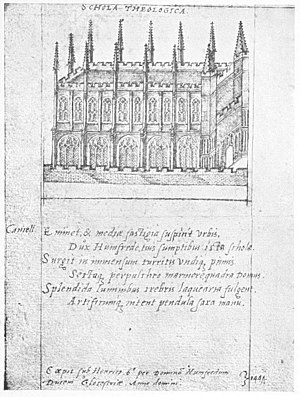 SCHOLA THEOLOGICA.
Eminet, & mediæ fastigia suspicit Vrbis,
Dux Humfrede, tuis sumptibus ista schola.
Surgit in immensum turritis vndiq, pinnis
Sectaq, perpulchro marmore quadra Domus.
Splendida luminibus crebris laquearia fulgent,
Artificumq, nitent pendula saxa manu.
Cœpit sub Henrico 6º per Dominū Humfredum
Ducem Glocestriæ Anno domini